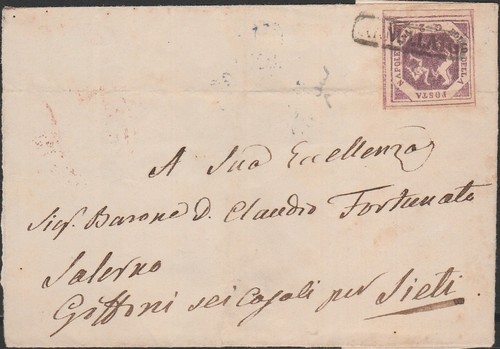 ANNULLATO
POSTA
NAPOLE
A Sua Eccellenza
Sig. Barone D. Claudio Fortunato
Salerno
Giffoni sei Casali per Sieti